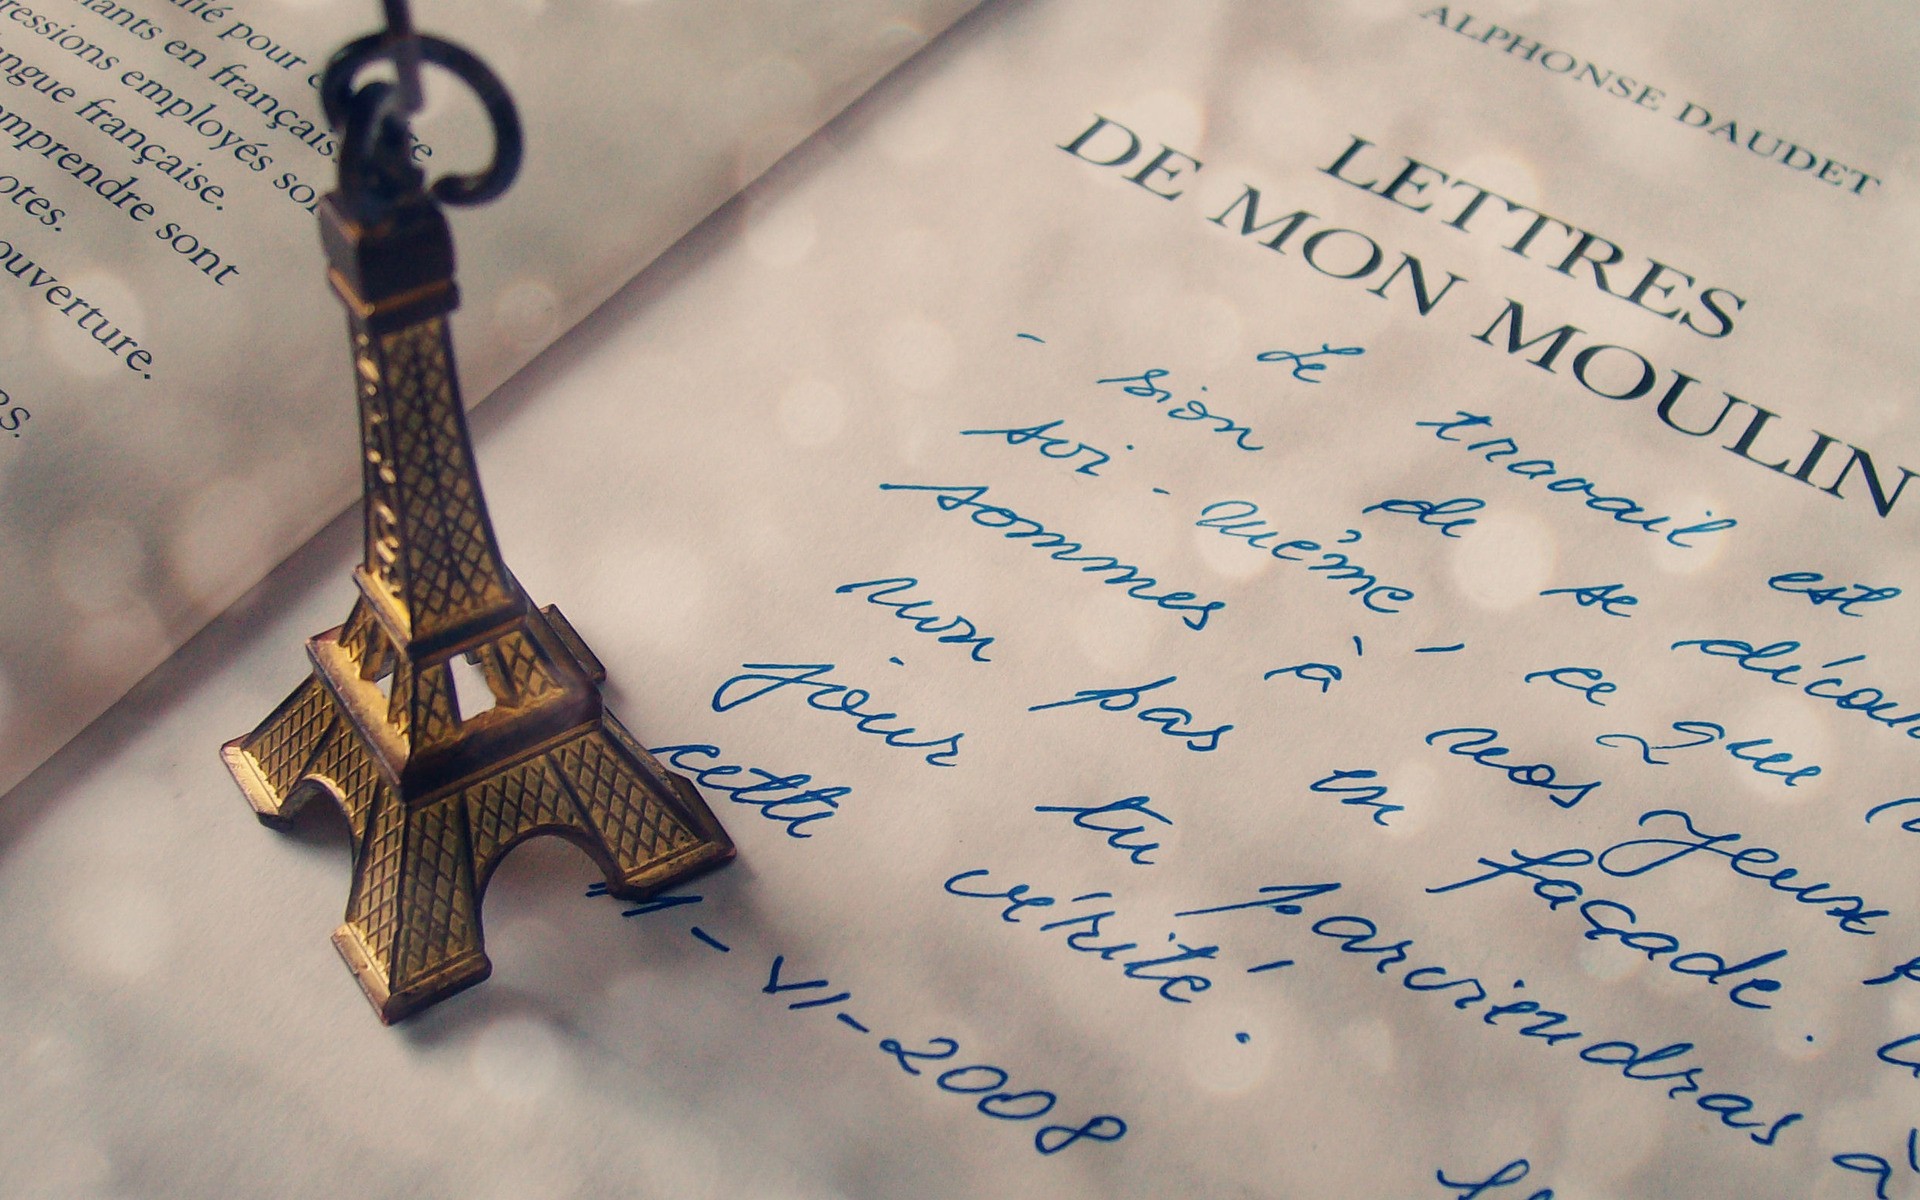 pour
en français.
employés
langue française.
sont
ouverture.
ALPHONSE DAUDET
LETTRES
DE MON MOULIN
- Le travail est
sion de se décou
soi-même, ce que
sommes à nos yeux
non pas en façade.
jour tu parviendras à
cette vérité.
11-VI-2008